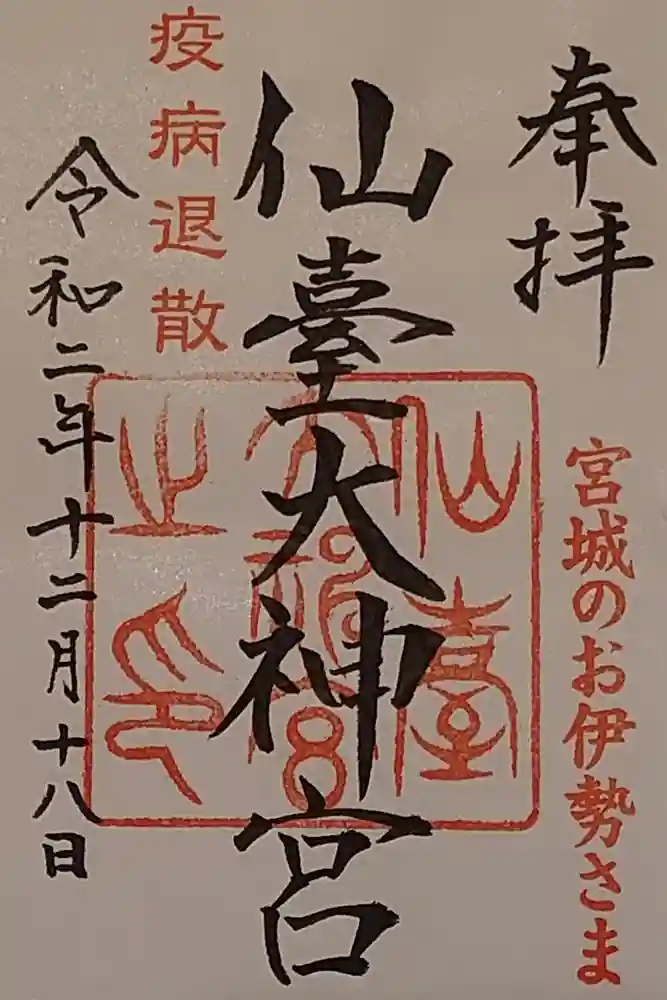 奉拝
宮城のお伊勢さま
仙臺大神宮
仙臺
大神宮
之印
疫病退散
令和二年十二月十八日